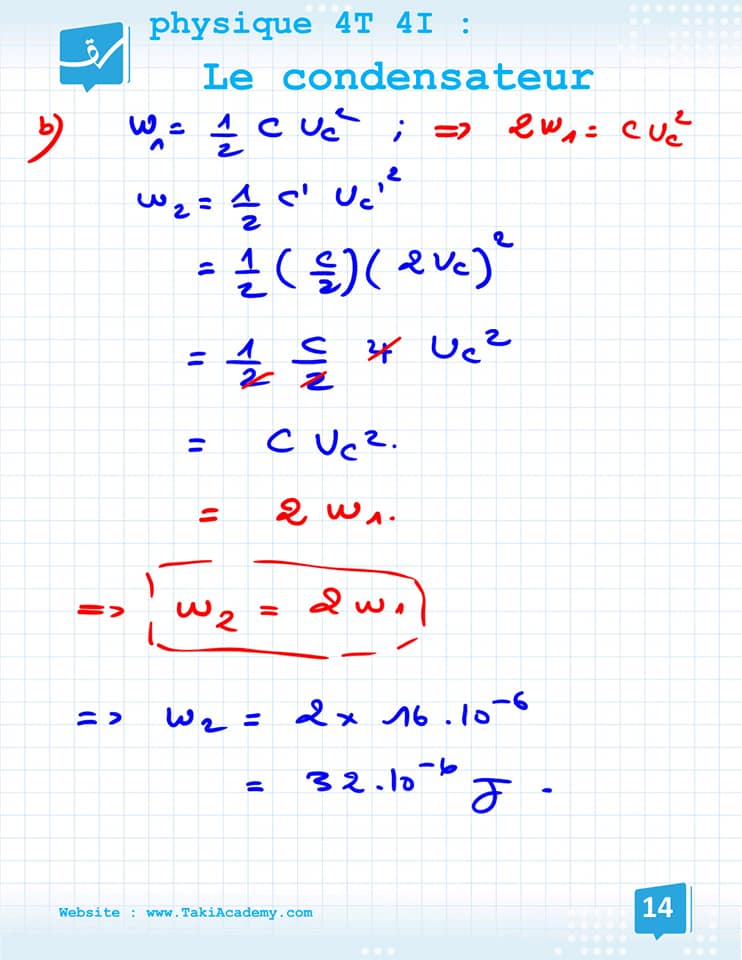 physique 4T 4I :
Le condensateur
b) W₁ = 1/2 C Uc² ; => 2W₁ = C Uc²
W₂ = 1/2 C' Uc'²
= 1/2 (C/2)(2Uc)²
= 1/2 C/2 4 Uc²
= C Uc².
= 2 W₁.
=> W₂ = 2W₁
=> W₂ = 2 x 16.10⁻⁶
= 32.10⁻⁶ J.
Website : www.TakiAcademy.com
14